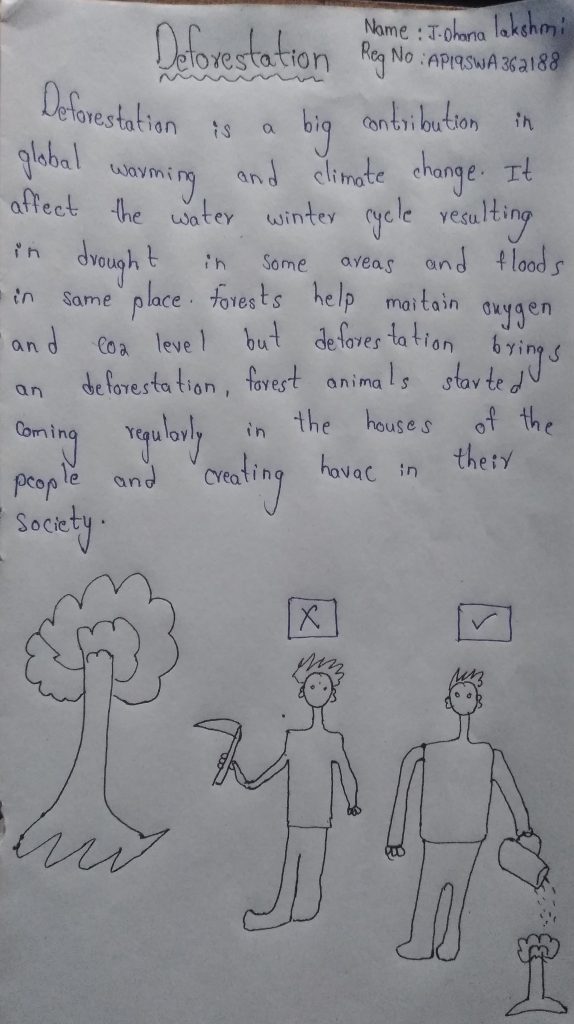 Deforestation
Name : J. Ohana lakshmi
Reg No : AP19SWA362188
Deforestation is a big contribution in
global warming and climate change. It
affect the water winter cycle resulting
in drought in some areas and floods
in same place. forests help maitain oxygen
and co2 level but deforestation brings
an deforestation, forest animals started
coming regularly in the houses of the
people and creating havac in their
society.
X ✓